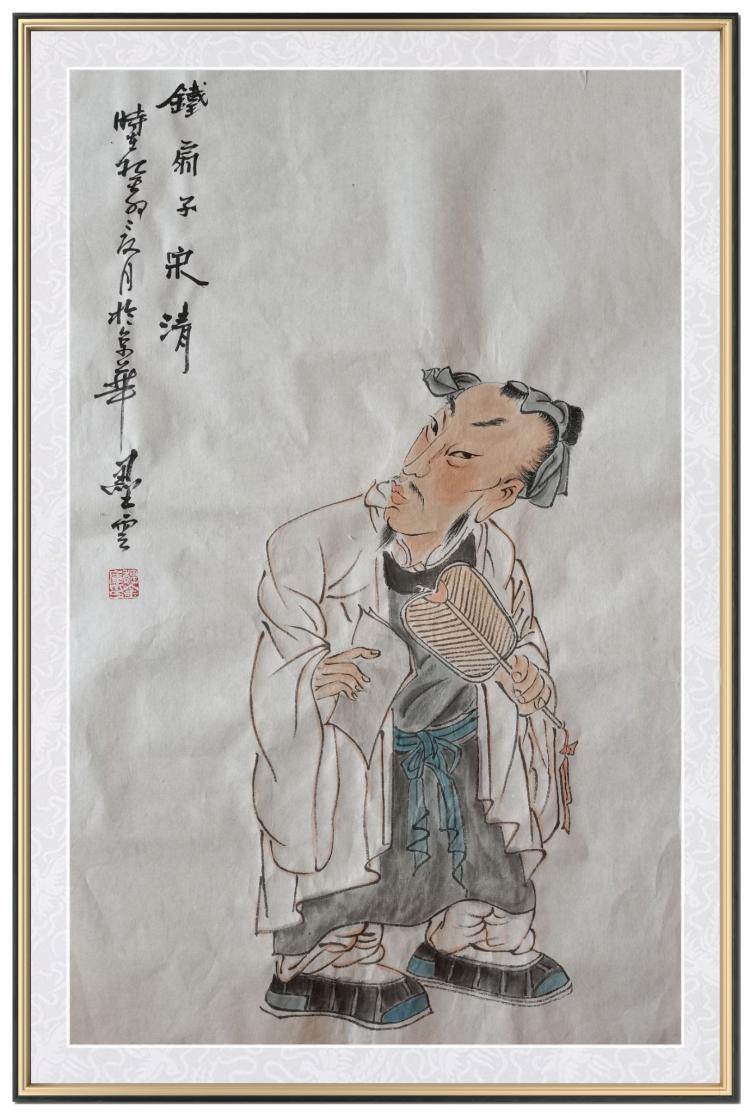 鐵扇子宋清
時在癸卯夏月於京華 墨雲